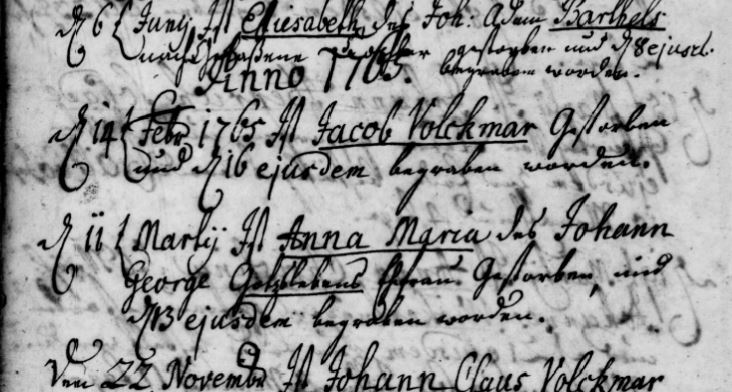 d 6 Junij Ist Eliesabeth, des Joh: Adam Barthels
nachgelaßene gestorben und d 8 ejusd.
begraben worden.
Anno 1765.
d 14 Febr 1765 Ist Jacob Volckmar Gestorben
und d 16 ejusdem begraben worden.
d 11 Martij Ist Anna Maria des Johann
George Gotzlebens Ehefrau Gestorben, und
d 13 ejusdem begraben worden.
Den 22 Novembr Ist Johann Claus Volckmar